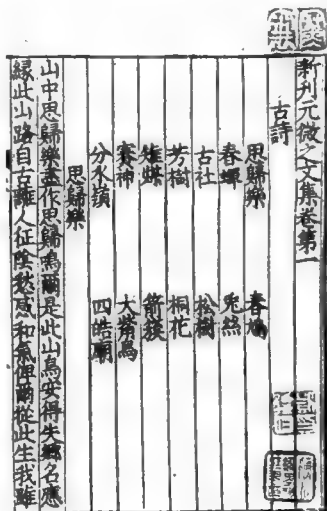 新刊元微之文集卷第一
古詩
思歸樂 春鳩
春蟬 兔絲
古社 松樹
芳樹 桐花
雉媒 箭鏃
賽神 大觜烏
分水嶺 四皓廟
思歸樂
山中思歸樂盡作思歸鳴爾是此山鳥安得失鄉名應
緣此山路自古離人征陰愁感和氣俾爾從此生我雖